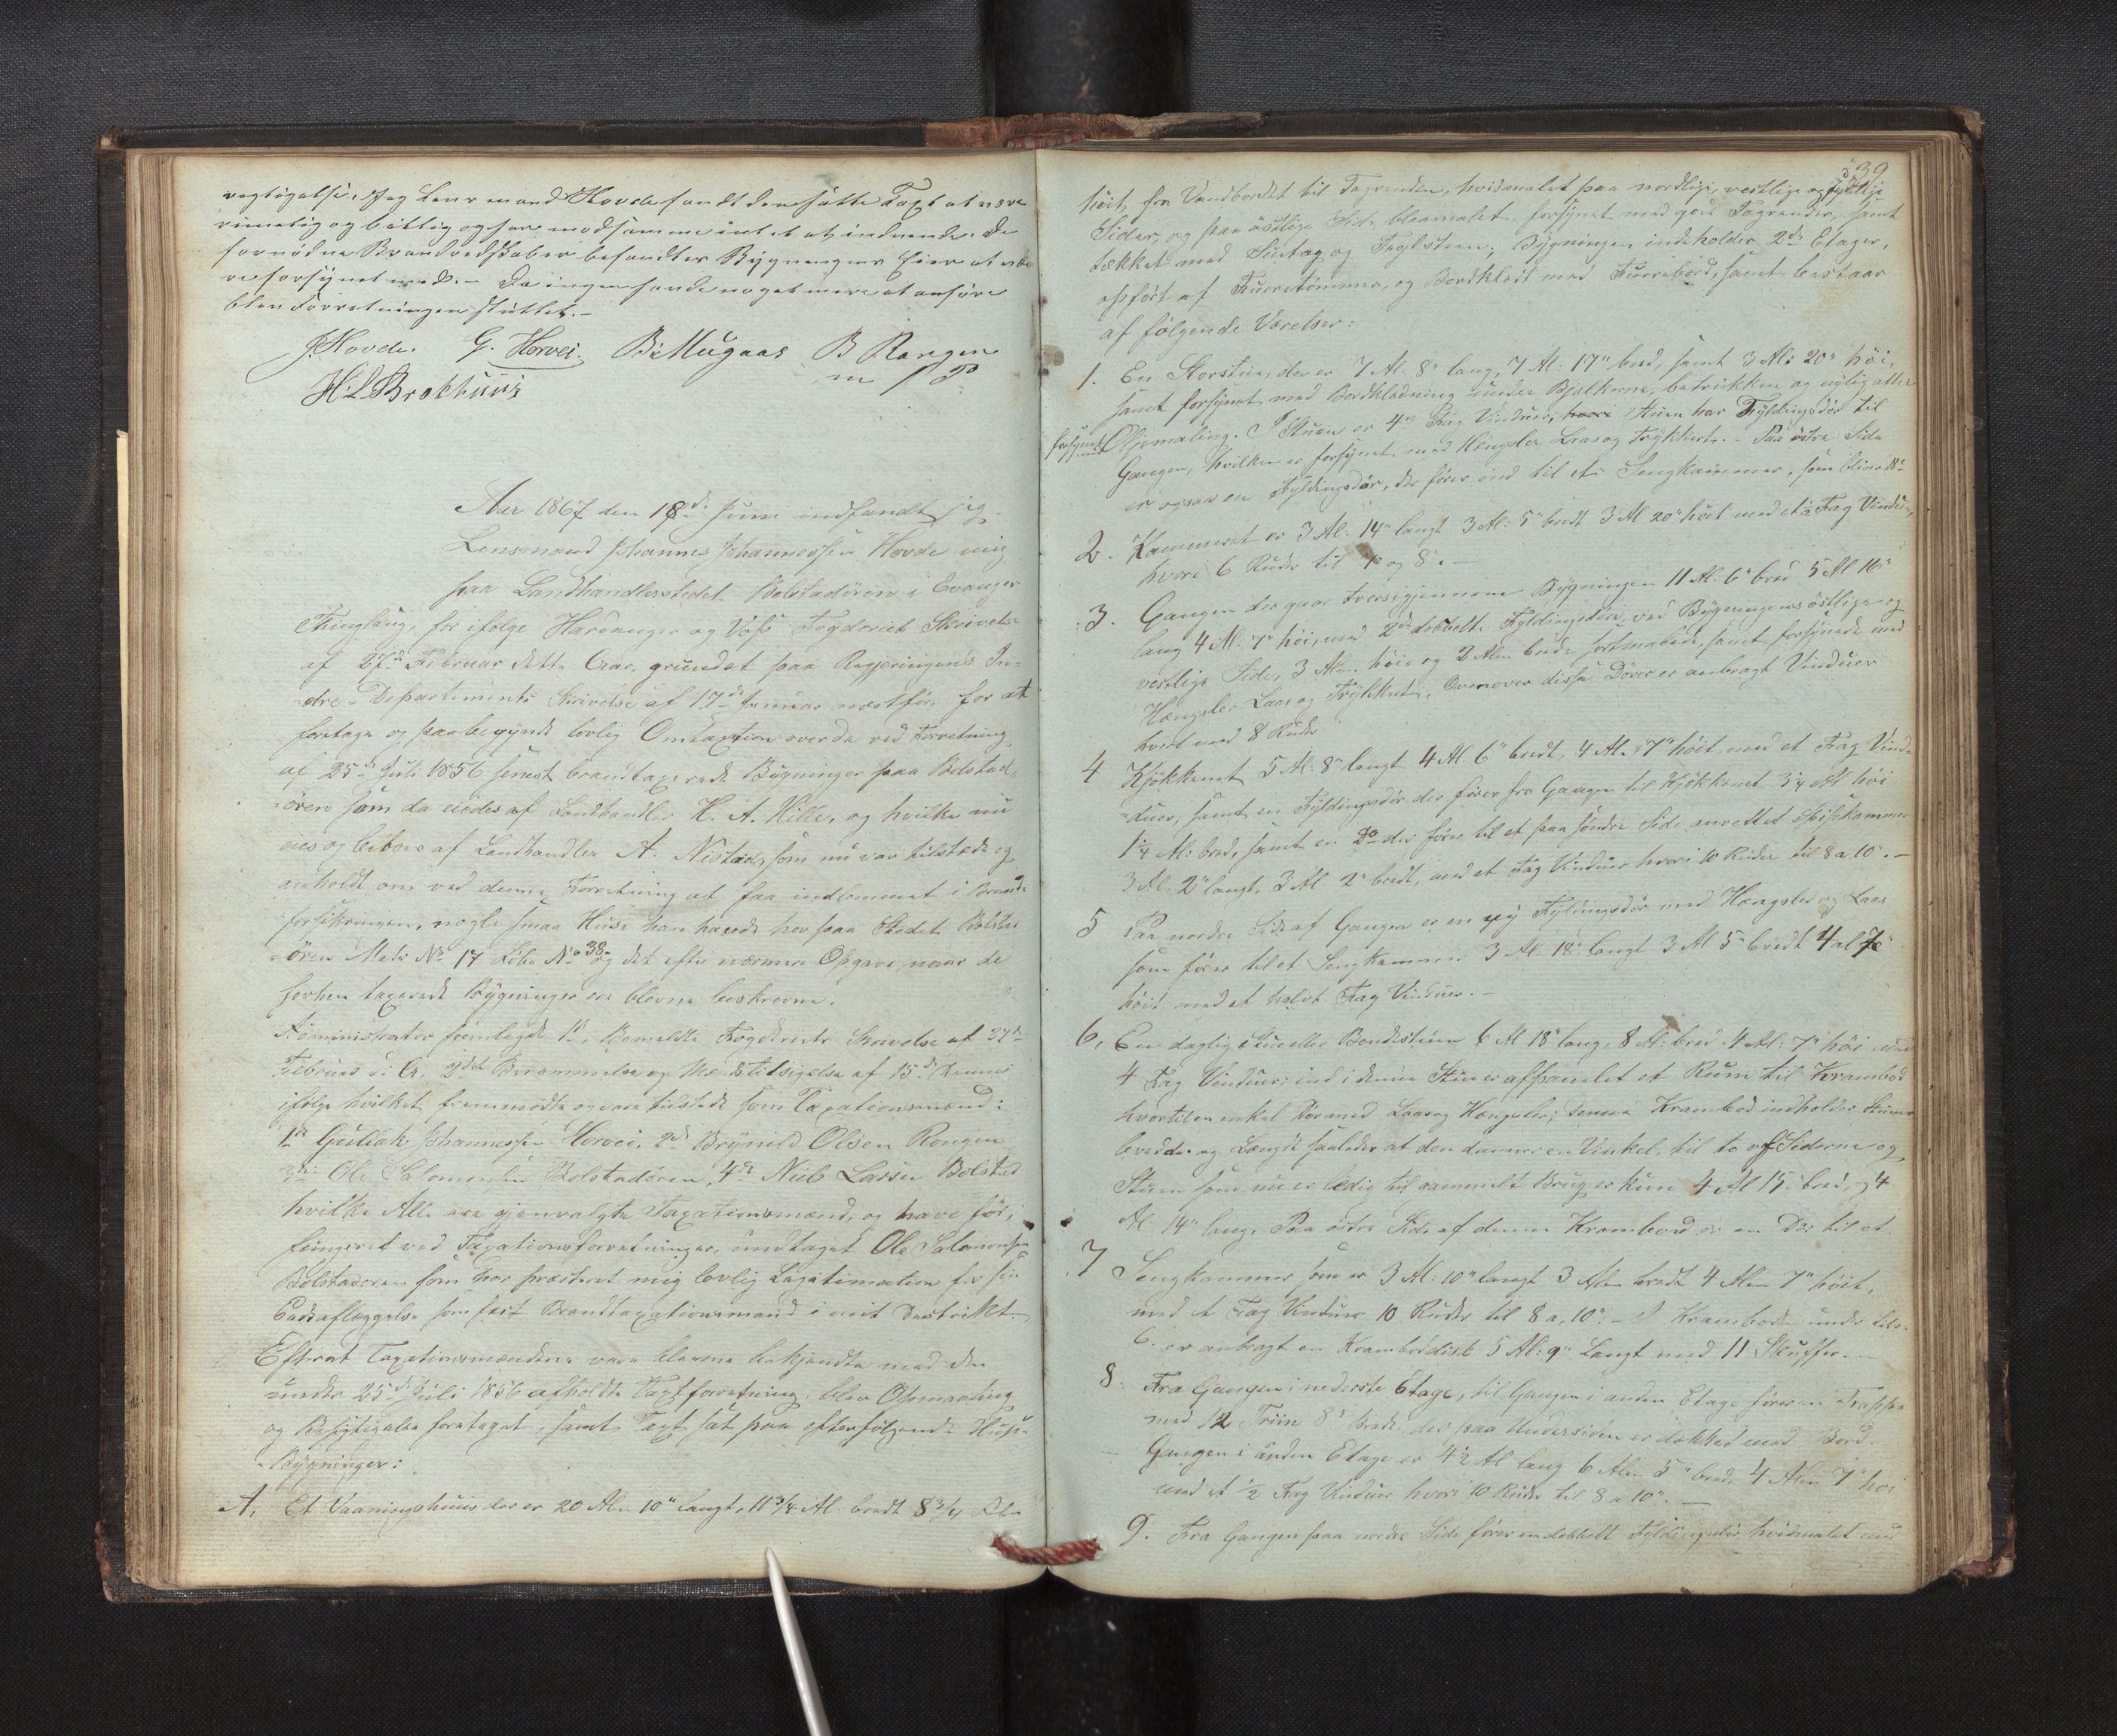 vegtigelse. Jeg Lensmand Hovde fandt den satte Taxt at være
rimelig og billig og har mod samme intet at indvende. De
fornødne Brandredskaber befandtes Bygningens Eier at væ-
re forsynet med. – Da ingen havde noget mere at anføre
blev Forretningen sluttet. –
J Hovde. G. Horvei. B. Mugaas B Rongen
m / P
H. L Brekhuus
Aar 1867 den 18de Juni indfandt jeg
Lensmand Johannes Johannessen Hovde mig
paa Landhandlerstedet Bolstadøren i Evanger
Thinglaug, for ifølge Hardanger og Voss Fogderiets Skrivelse
af 27de Februar dette Aar, grundet paa Regjeringens In-
dre-Departements Skrivelse af 17de Januar næstfør, for at
foretage og paabegynde lovlig Omtaxtion over de ved Forretning
af 25de Juli 1856 senest brandtaxerede Bygninger paa Bolstad-
øren som da eiedes af Landhandler H. A. Hille, og hvilke nu
eies og beboes af Landhandler A. Nestad, som nu var tilstede og
anholdt om ved denne Forretning at faa indlemmet i Brand-
forsikringen, nogle smaa Huse han havde her paa Stedet Bolstad-
øren Matr No 17 Løbe No 38 og det efter nærmere Opgave naar de
forhen taxerede Bygninger ere blevne beskrevne.
Administrator fremlagde 1st, Bemeldte Fogderiets Skrivelse af 27de
Februar d. A. 2det Berammelse og Mændstilsigelse af 15de dennes
ifølge hvilket fremmødte og vare tilstede som Taxationsmænd:
1st Gullak Johannessen Horvei, 2de Brynild Olsen Rongen
3die Ole Salomonsen Bolstadøren, 4de Niels Larsen Bolstad
hvilke Alle ere gjenvalgte Taxationsmænd, og have før,
fungeret ved Taxationsforretninger, undtaget Ole Salomonsen
Bolstadøren som har præsteret mig lovlig Legitimation for sin
Edsaflæggelse som fast Brandtaxationsmand i mit Distrikt.
Efterat Taxationsmændene vare blevne bekjendte med den
under 25de Juli 1856 afholdte Taxtforretning, blev Opmaaling
og Besigtigelse foretaget, samt Taxt sat paa efterfølgende Huse-
Bygninger:
A, Et Vaaningshuus der er 20 Al. 10" langt, 11 3/4 Al. bredt 8 3/4 Al.
39
høit, fra Vandbordet til Tagrenden, hvidmalet paa nordlige, vestlige og sydlige
Sider, og paa østlige Side bleemalet, forsynet med gode Tagrender, samt
tækket med Suetag og Taglsteen; Bygningen indeholder 2de Etager,
opført af Furretømmer, og Bordklædt med Furrebord, samt bestaar
af følgende Værelser:
1. En Storstue, der er 7 Al. 8" lang, 7 Al. 17" bred, samt 3 Al. 20" høi,
samt forsynet med Bordklædning under Bjelkerne, betrukken og nylig atter
forsynet med Oljemaling. I Stuen er 4re Fag Vinduer, hvori Stuen har Fyldingsdør til
Gangen, hvilken er forsynet med Hængsler Laas og Trykkert. – Paa østre Side
er ogsaa en Fyldingsdør, der fører ind til et Sengkammer, som bliver No
2. Kammeret er 3 Al. 14" langt 3 Al. 5" bredt 3 Al 20" høit med et 1/2 Fag Vinduer,
hvori 6 Ruder til 7 og 8". –
3. Gangen der gaar tversigjennem Bygningen 11 Al. 6" bred 5 Al 16"
lang 4 Al. 7" høi, med 2de dobbelte Fyldingsdøre, ved Bygningens østlige og
vestlige Side, 3 Alen høie og 2 Alen brede sortmalede, samt forsynede med
Hængsler Laas og Trykkert, ovenover disse Døre er anbragt Vinduer
hvert med 8 Ruder
4 Kjøkkenet 5 Al. 8" langt 4 Al 6" bredt, 4 Al. 7" høit med et Fag Vin-
duer, samt en Fyldingsdør der fører fra Gangen til Kjøkkenet 3 1/4 Al høi
1 1/4 Al. bred, samt en Do der fører til et paa søndre Side anrettet Spiskammer
3 Al. 2" langt, 3 Al 2" bredt, med et Fag Vinduer hvori 10 Ruder til 8 a 10". –
5 Paa nordre Side af Gangen er en ny Fyldingsdør med Hængsler og Laas
som fører til et Sengkammer 3 Al. 18" langt 3 Al 5" bredt 4 al 7"
høit med et halvt Fag Vinduer. –
6, En daglig Stue eller Bondestuen 6 Al 18" lang, 8 Al. bred 4 Al. 7" høi med
4 Fag Vinduer; ind i denne Stue er afpanelet et Rum til Krambod
hvortil en enkel Dør med Laas og Hængsler; denne Krambod indholder Stuens
bredde og Længde saaledes at den danner en Vinkel, til to af Siderne og
Stuen som nu er ledig til gammelt Brug er kun 4 Al 15" bred, og 4
Al 14" lang. Paa østre Side af denne Krambod er en Dør til et
7 Sengkammer som er 3 Al. 10" langt 3 Alen bredt 4 Alen 7" høit,
med et Fag Vinduer 10 Ruder til 8 a 10". – I Kramboden under Litr.
6. er anbragt en Kramboddisk 5 Al. 9" langt med 11 Skuffer. –
8. Fra Gangen i nederste Etage, til Gangen i anden Etage fører en Trappe
med 12 Triin 8" brede, der paa Undersiden er dækket med Bord
Gangen i anden Etage er 4 1/2 Al lang 6 Alen 5" bred, 4 Alen 7" høi
med et 1/2 Fag Vinduer hvori 10 Ruder til 8 a 10". –
9. Fra Gangen paa nordre Side fører en dobbelt Fyldingsdør hvidmalet med